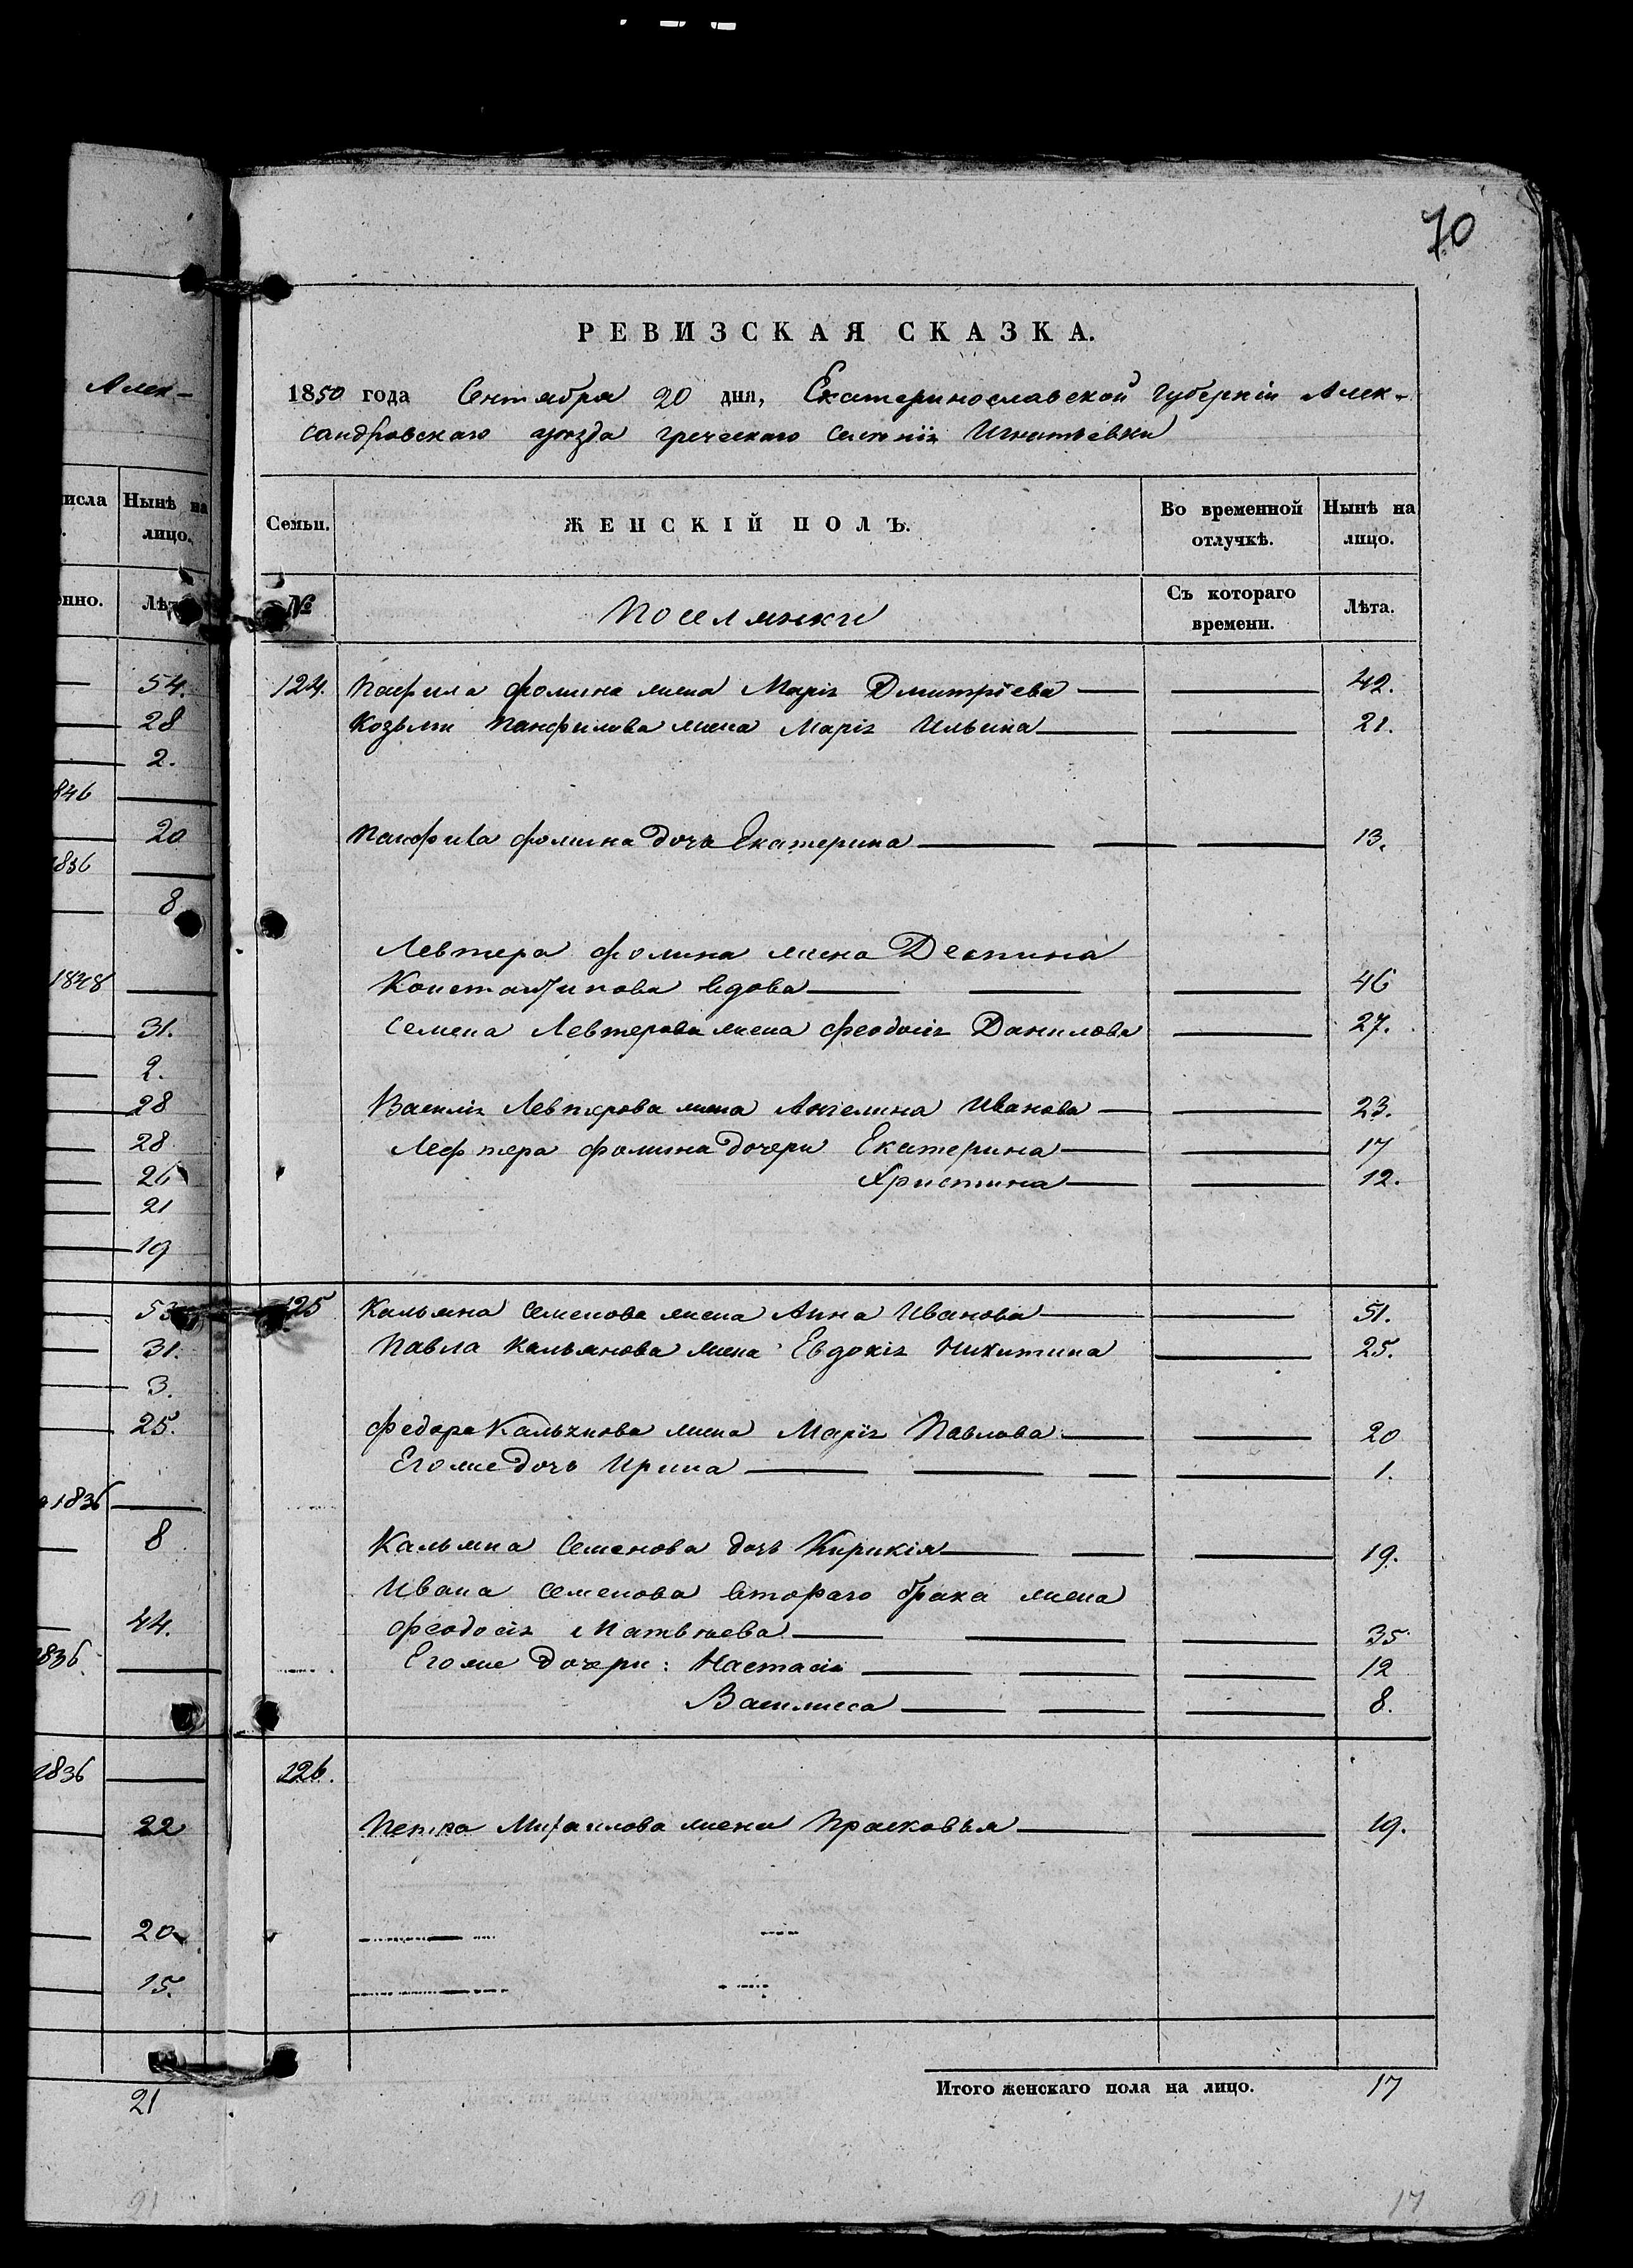 70
РЕВИЗСКАЯ СКАЗКА.
Алек-
1850 года Сентября 20 дня, Екатеринославской Губерніи Алек-
сандровскаго уѣзда греческаго селенія Игнатьевки
числа Нынѣ на лицо.
Семьи. ЖЕНСКІЙ ПОЛЪ. Во временной отлучкѣ. Нынѣ на лицо.
енно. Лѣта
№ Поселянки Съ котораго времени. Лѣта.
54. 124. Панфила Фомина жена Марія Дмитріева 42.
28 Козьмы Панфилова жена Марія Ильина 21.
2.
1846
20 Панфила Фомина дочь Екатерина 13.
1836
8
Левтера Фомина жена Деспина
1848 Константинова вдова 46
31. Семена Левтерова жена Феодосія Данилова 27.
2.
28 Василія Левтерова жена Ангелина Иванова 23.
28 Лефтера Фомина дочери Екатерина 17
26 Христина 12.
21
19
53 125 Кальяна Семенова жена Анна Иванова 51.
31. Павла Кальянова жена Евдокія Никитина 25.
3.
25. Федора Кальянова жена Марія Павлова 20
Его же дочь Ирина 1.
1836
8 Кальяна Семенова дочь Кирикія 19.
Ивана Семенова втораго брака жена
44. Феодосія Матвѣева 35
1836. Его же дочери: Настасія 12
Василиса 8.
1836 126.
22 Петра Михаилова жена Прасковья 19.
20
15.
Итого женскаго пола на лицо. 17
21
21 17